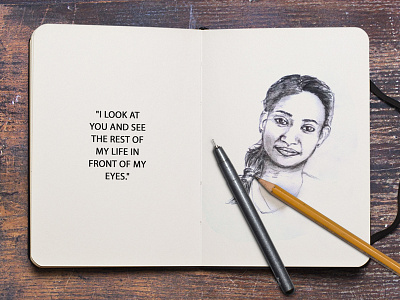 "I LOOK AT
YOU AND SEE
THE REST OF
MY LIFE IN
FRONT OF MY
EYES."